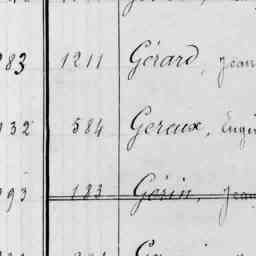 983 1211 Gérard, Jean
132 584 Gereux, Eugè
993 183 Gérin, Jean